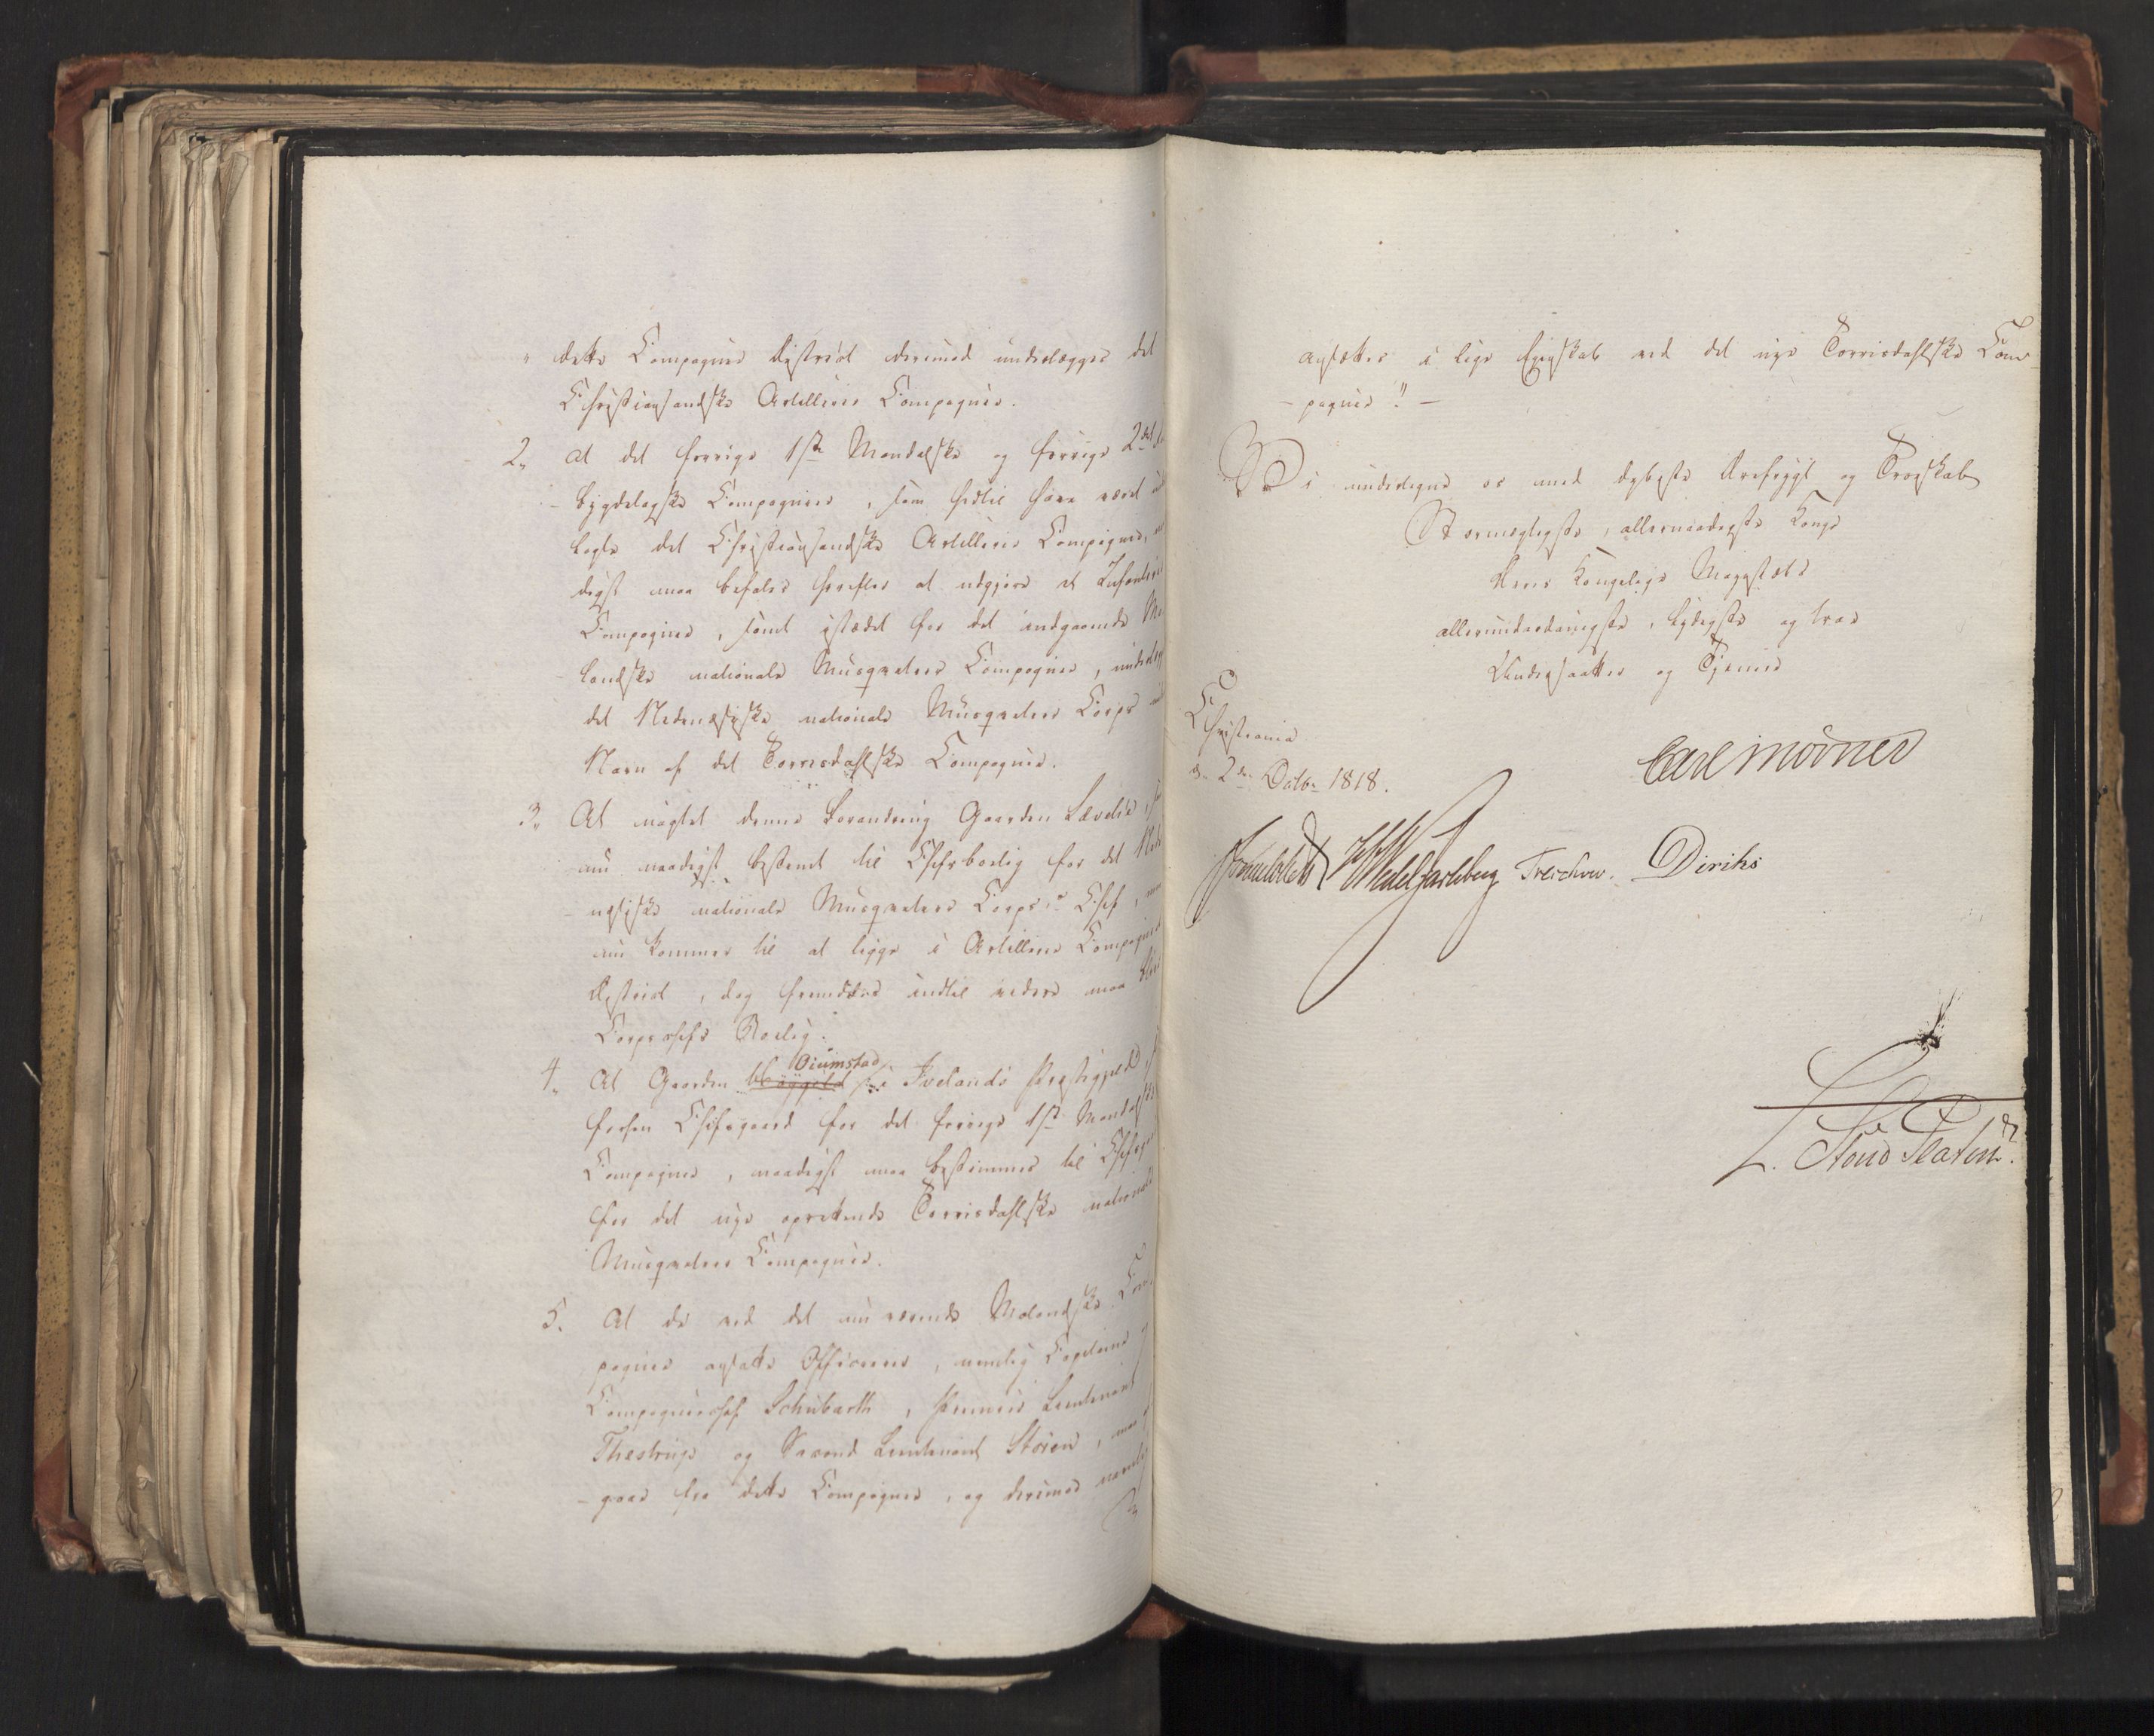 " dette Compagnies District derimod underlægges det
Christiansandske Artillerie Compagnie.
2, at det forrige 1ste Mandalske og forrige 2det
bygdelagske Compagnier, som hidtil have været
lagte det Christiansandske Artillerie Compagnie,
digst maa befales herefter at udgjøre et Infanterie
Compagnie, samt istædet for det indgaaende
landske nationale Musqueteer Compagnie,
det Nedenæsiske nationale Musqueteer Corps
Navn af det Torrisdahlske Compagnie.
3, At uagtet denne Forandring Gaarden
nu naadigst bestemt til Chefsbolig for det
næsiske nationale Musqueteer Corps's Chef,
nu kommer til at ligge i Artillerie Compagniets
District, dog fremdeles indtil videre maa
Corpschefs Bolig.
4, At Gaarden Oiumstad i Ivelands Præstegjeld,
forhen Chefsgaard for det forrige 1ste Mandalske
Compagnie, naadigst maa bestemmes til
for det nye oprettende Torrisdahlske nationale
Musqueteer Compagnie.
5. At de ved det nu værende Molandske Com-
pagnie ansatte Officerer, nemlig Capitaine og
Compagniechef Schubarth, Premier Lieutenant
Thestrup og Second Lieutenant Stoien, maa
gaae fra dette Compagnie, og derimod
ansættes i lige Egenskab ved det nye Torrisdahlske Com-
- pagnie". -
Vi undertegne os med dybeste Ærefrygt og Troskab
Stormægtigste, allernaadigste Konge
Deres Kongelige Majestæts
allerunderdanigste, lydigste og troe
Undersaatter og Tjenere
Christiania
d. 2den Octbr 1818.
Carl Mörner
Sommelfeldt HWedelJarlsberg Treschow. Diriks
L. Stoud Platou